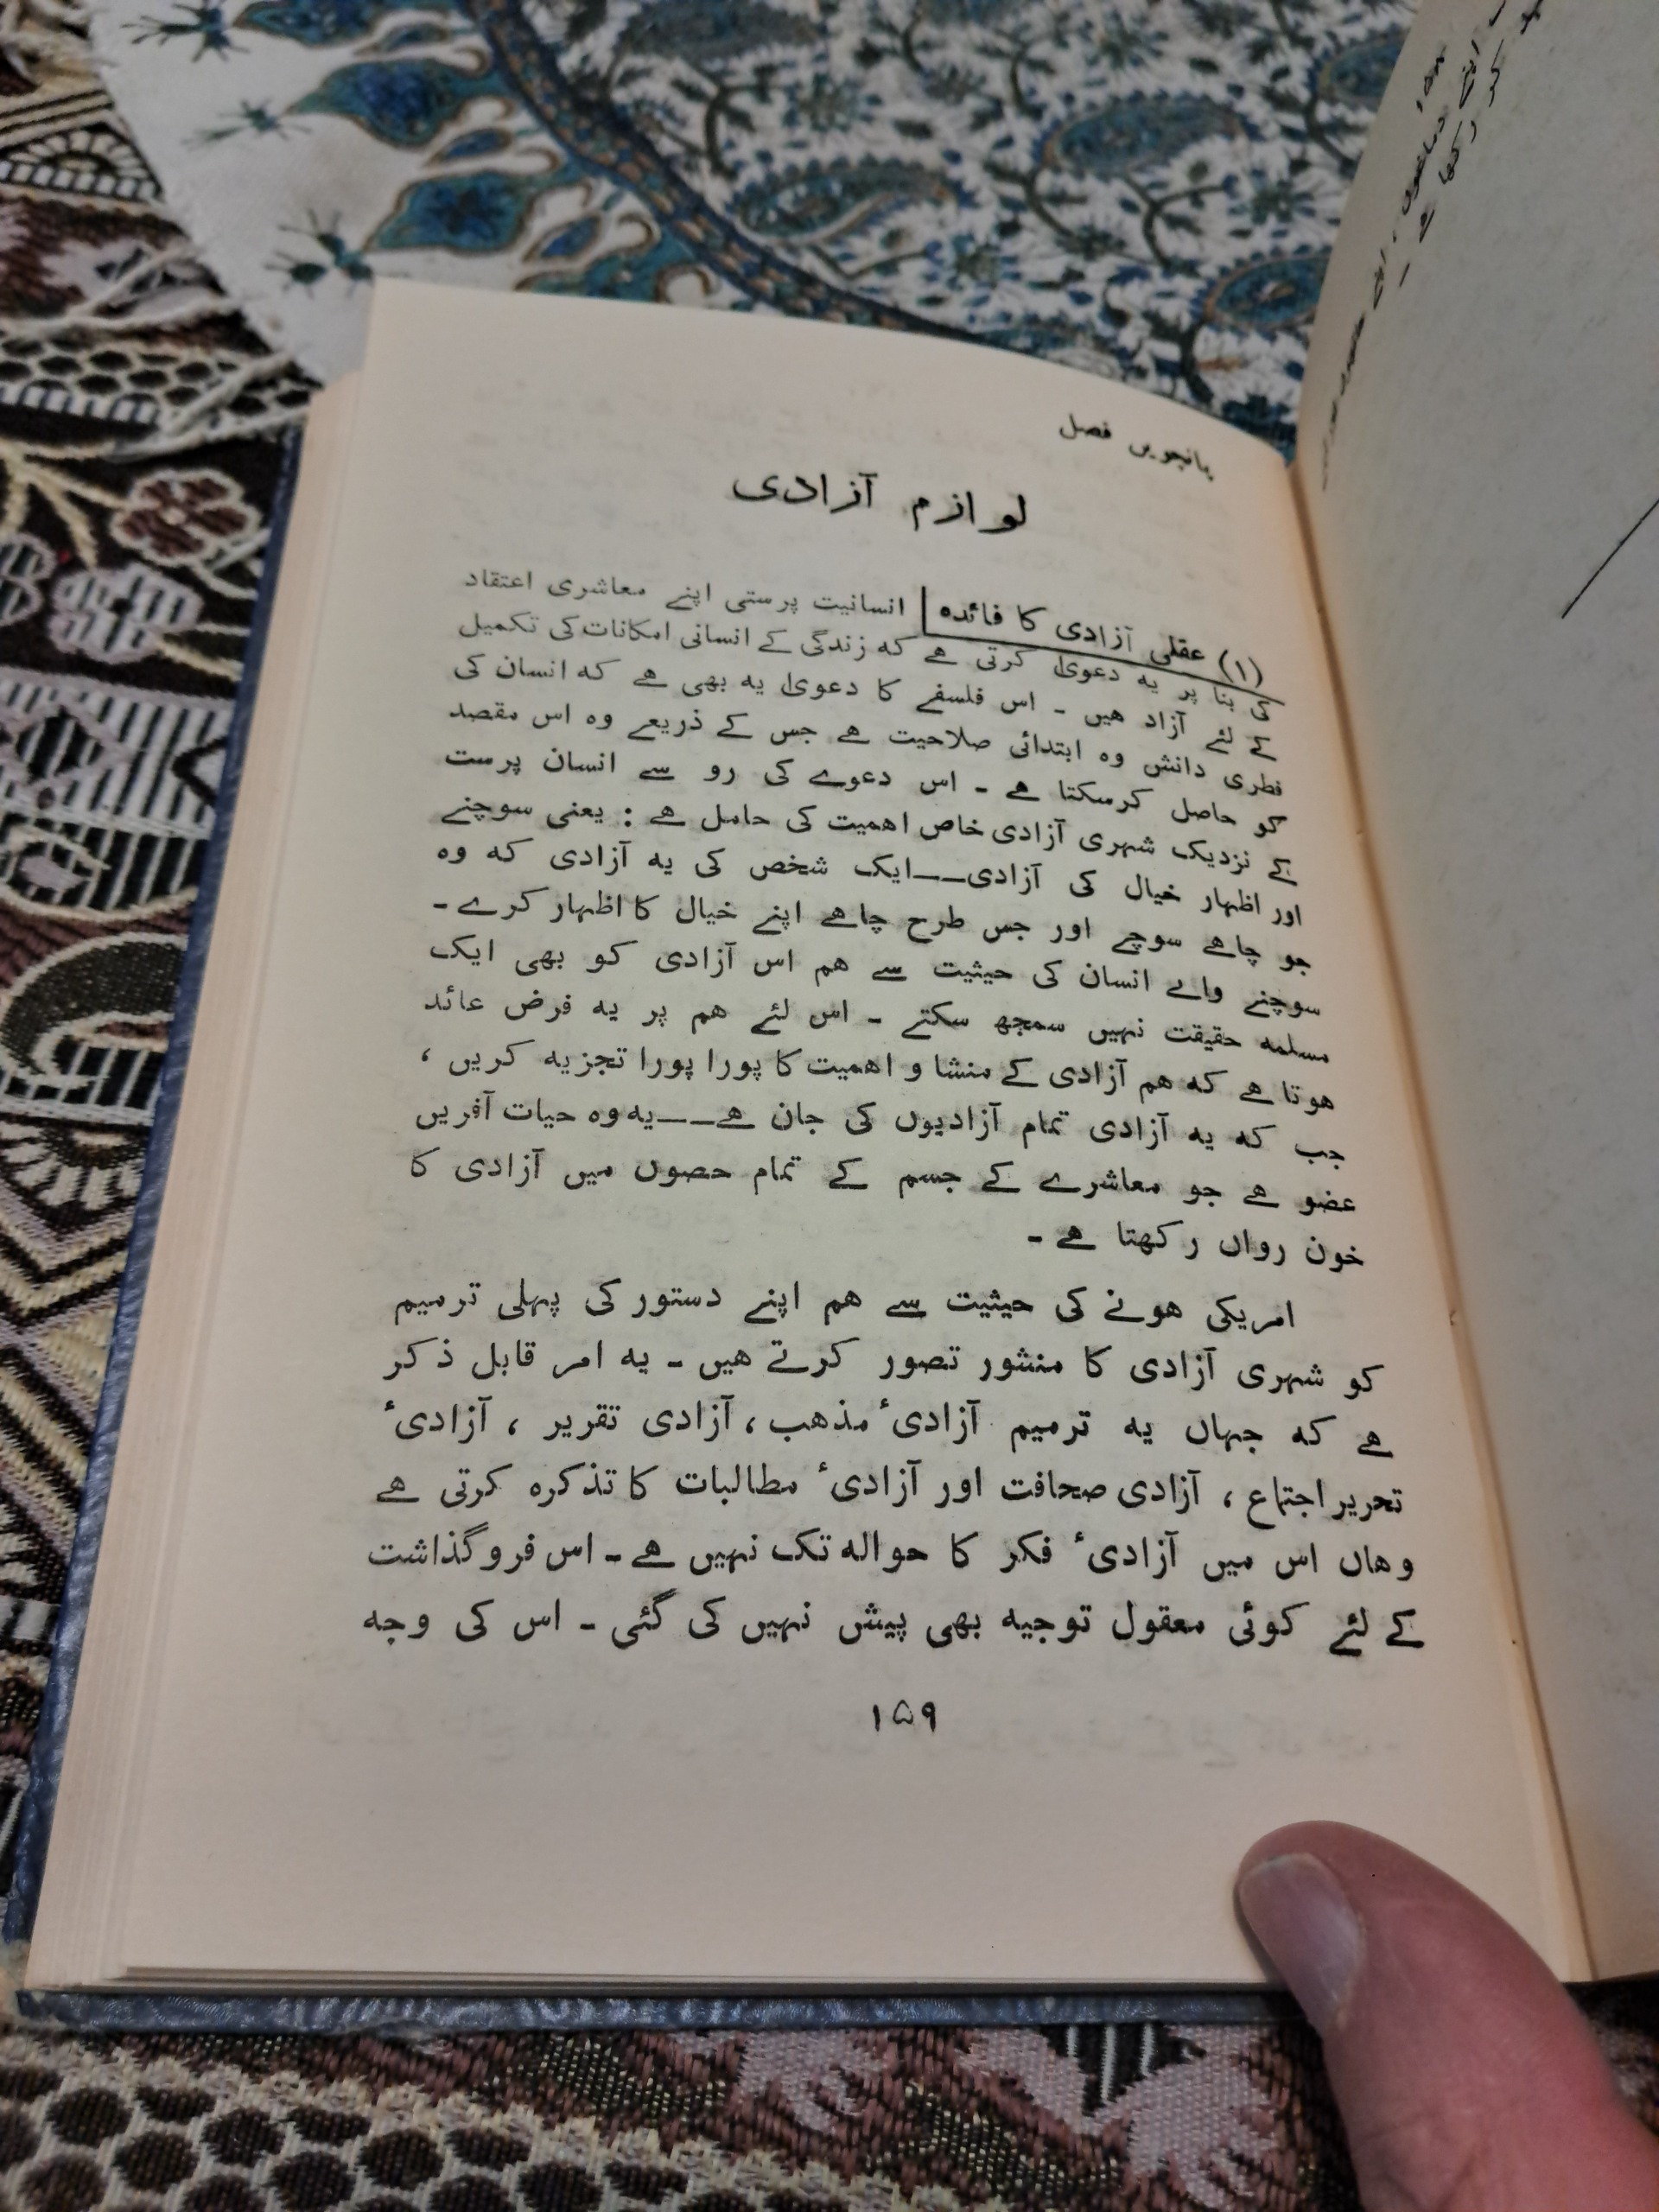 پانچویں فصل
لوازم آزادی
(۱) عقلی آزادی کا فائدہ | انسانیت پرستی اپنے معاشری اعتقاد
کی بنا پر یہ دعویٰ کرتی ہے کہ زندگی کے انسانی امکانات کی تکمیل
کے لئے آزاد ہیں ۔ اس فلسفے کا دعویٰ یہ بھی ہے کہ انسان کی
فطری دانش وہ ابتدائی صلاحیت ہے جس کے ذریعے وہ اس مقصد
کو حاصل کرسکتا ہے ۔ اس دعوے کی رو سے انسان پرست
کے نزدیک شہری آزادی خاص اہمیت کی حامل ہے : یعنی سوچنے
اور اظہار خیال کی آزادی——ایک شخص کی یہ آزادی کہ وہ
جو چاہے سوچے اور جس طرح چاہے اپنے خیال کا اظہار کرے ۔
سوچنے والے انسان کی حیثیت سے ہم اس آزادی کو بھی ایک
مسلمہ حقیقت نہیں سمجھ سکتے ۔ اس لئے ہم پر یہ فرض عائد
ہوتا ہے کہ ہم آزادی کے منشا و اہمیت کا پورا پورا تجزیہ کریں ،
جب کہ یہ آزادی تمام آزادیوں کی جان ہے——یہ وہ حیات آفریں
عضو ہے جو معاشرے کے جسم کے تمام حصوں میں آزادی کا
خون رواں رکھتا ہے ۔
امریکی ہونے کی حیثیت سے ہم اپنے دستور کی پہلی ترمیم
کو شہری آزادی کا منشور تصور کرتے ہیں ۔ یہ امر قابل ذکر
ہے کہ جہاں یہ ترمیم آزادیٔ مذہب ، آزادی تقریر ، آزادیٔ
تحریر اجتماع ، آزادی صحافت اور آزادیٔ مطالبات کا تذکرہ کرتی ہے
وہاں اس میں آزادیٔ فکر کا حوالہ تک نہیں ہے ۔ اس فروگذاشت
کے لئے کوئی معقول توجیہ بھی پیش نہیں کی گئی ۔ اس کی وجہ
۱۵۹